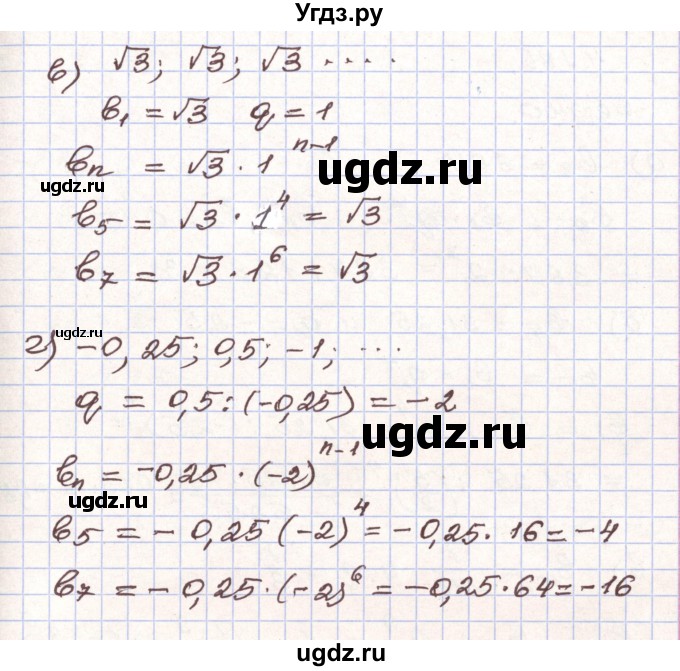 Угдз.ру
в) √3; √3; √3 ....
b₁ = √3 q = 1
bₙ = √3 · 1ⁿ⁻¹
ugdz.ru
ugdz.ru
b₅ = √3 · 1⁴ = √3
b₇ = √3 · 1⁶ = √3
ugdz.ru
г) -0,25; 0,5; -1; ...
q = 0,5 : (-0,25) = -2
ugdz.ru
bₙ = -0,25 · (-2)ⁿ⁻¹
ugdz.ru
b₅ = -0,25 (-2)⁴ = -0,25 · 16 = -4
b₇ = -0,25 · (-2)⁶ = -0,25 · 64 = -16
ugdz.ru